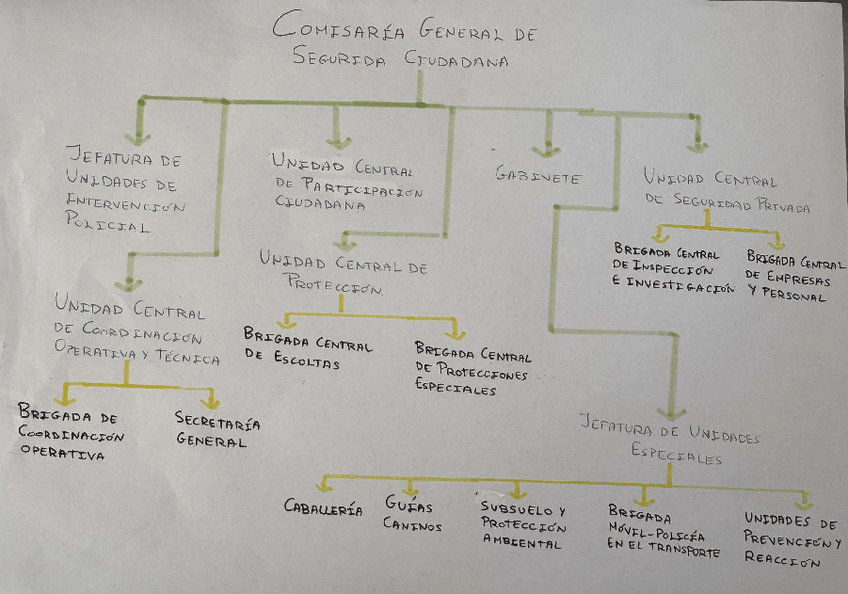 COMISARÍA GENERAL DE
SEGURIDA CIUDADANA
JEFATURA DE
UNIDADES DE
INTERVENCIÓN
POLICIAL
UNIDAD CENTRAL
DE PARTICIPACIÓN
CIUDADANA
GABINETE
UNIDAD CENTRAL
DE SEGURIDAD PRIVADA
BRIGADA CENTRAL
DE INSPECCIÓN
E INVESTIGACIÓN
BRIGADA CENTRAL
DE EMPRESAS
Y PERSONAL
UNIDAD CENTRAL DE
PROTECCIÓN
BRIGADA CENTRAL
DE ESCOLTAS
BRIGADA CENTRAL
DE PROTECCIONES
ESPECIALES
UNIDAD CENTRAL
DE COORDINACIÓN
OPERATIVA Y TÉCNICA
BRIGADA DE
COORDINACIÓN
OPERATIVA
SECRETARÍA
GENERAL
JEFATURA DE UNIDADES
ESPECIALES
CABALLERÍA
GUÍAS
CANINOS
SUBSUELO Y
PROTECCIÓN
AMBIENTAL
BRIGADA
MÓVIL-POLICÍA
EN EL TRANSPORTE
UNIDADES DE
PREVENCIÓN Y
REACCIÓN